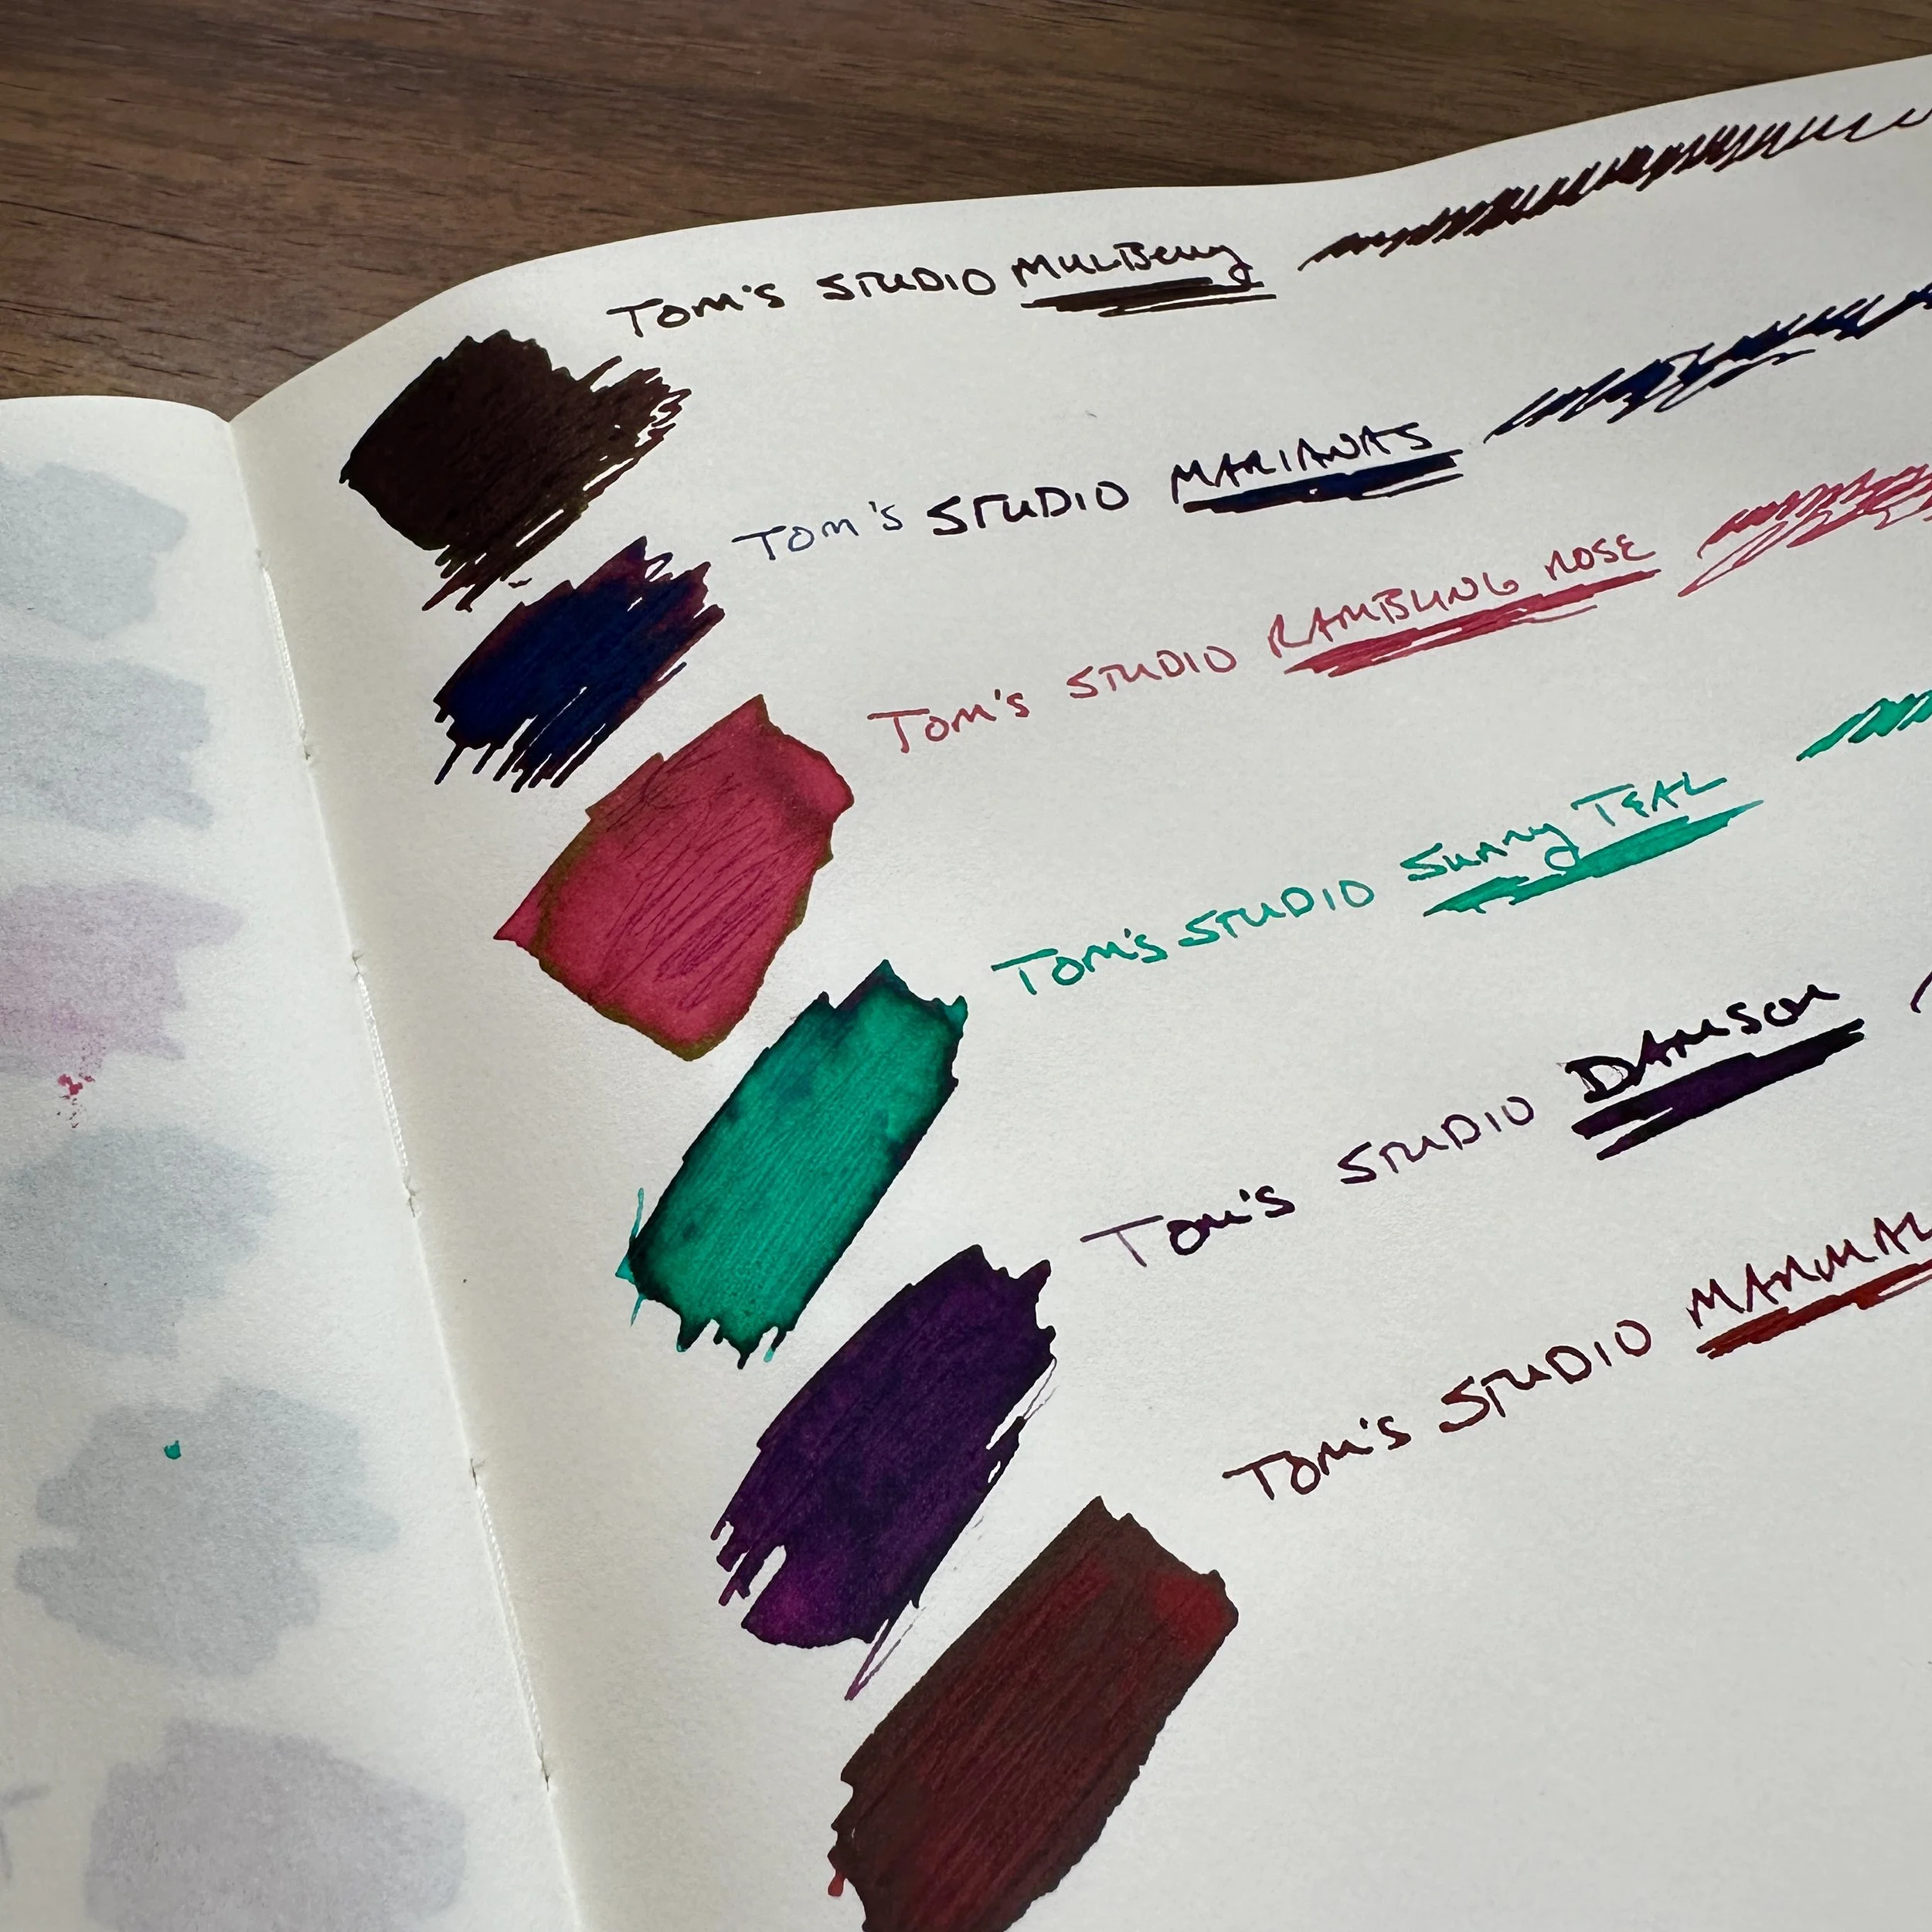 TOM'S STUDIO MULBerry
TOM'S STUDIO MARIANAS
TOM'S STUDIO RAMBLING ROSE
TOM'S STUDIO Sunny TEAL
TOM'S STUDIO DAMSON
TOM'S STUDIO